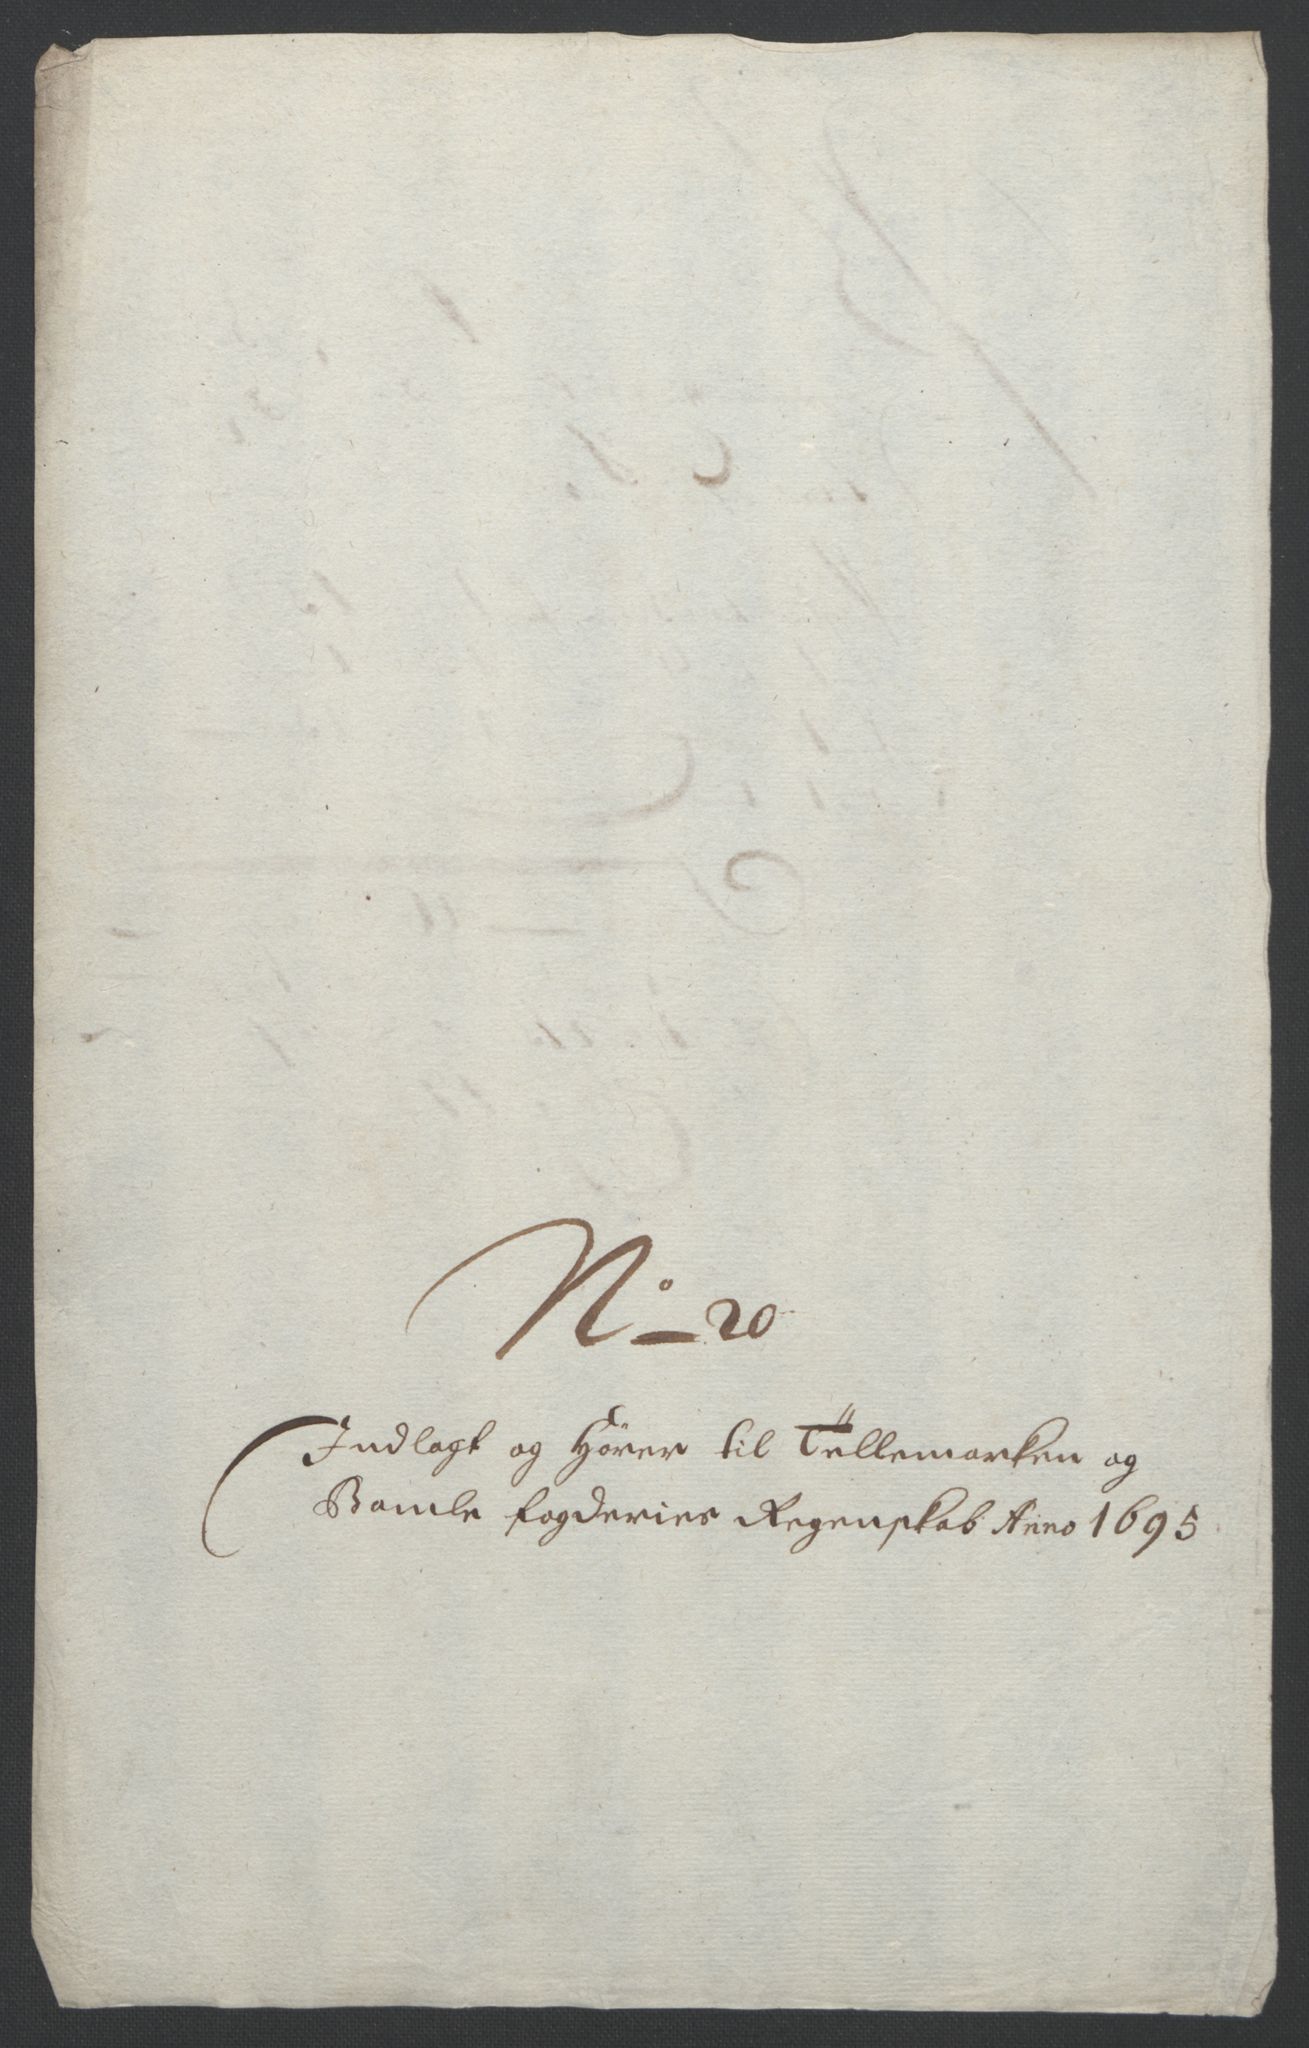 No 20
Indlagt og Hörer til Tellemarken og
Bamle fogderies Regenskab Anno 1695